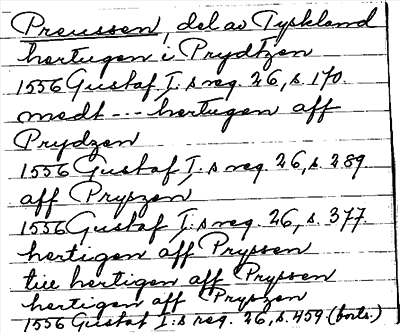 Preussen, del av Tyskland
hertugen i Prydtzen
1556 Gustaf I:s reg. 26, s. 170.
medt --- hertugen aff
Prydzen
1556 Gustaf I:s reg. 26, s. 289.
aff Pryszen
1556 Gustaf I:s reg. 26, s. 377.
hertigen aff Pryssen
tiil hertigen aff Pryssen
hertigen aff Pryszen
1556 Gustaf I:s reg. 26, s. 459 (forts.)